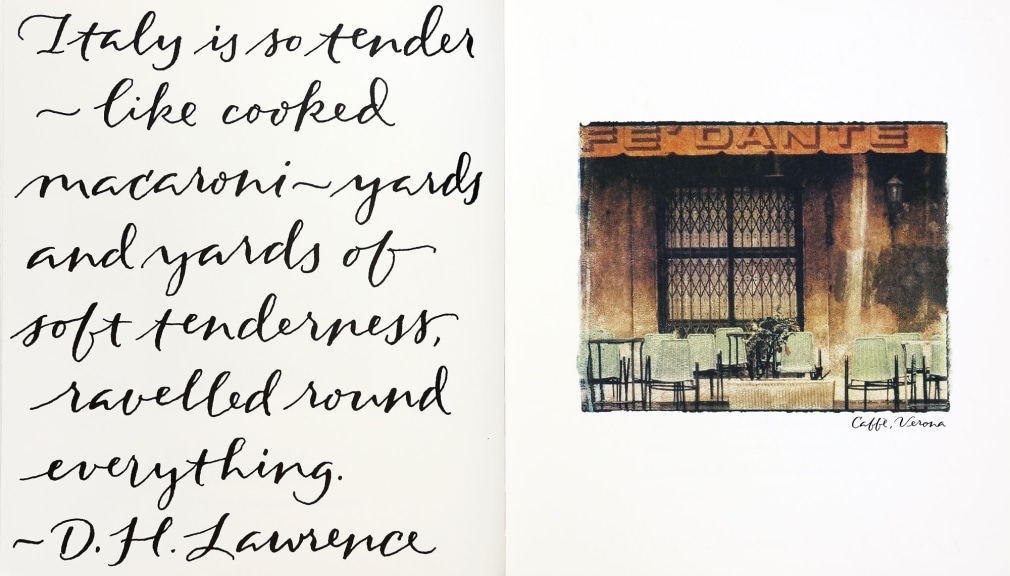 Italy is so tender
~ like cooked
macaroni~yards
and yards of
soft tenderness,
ravelled round
everything.
~D. H. Lawrence
FE' DANTE
Caffè, Verona